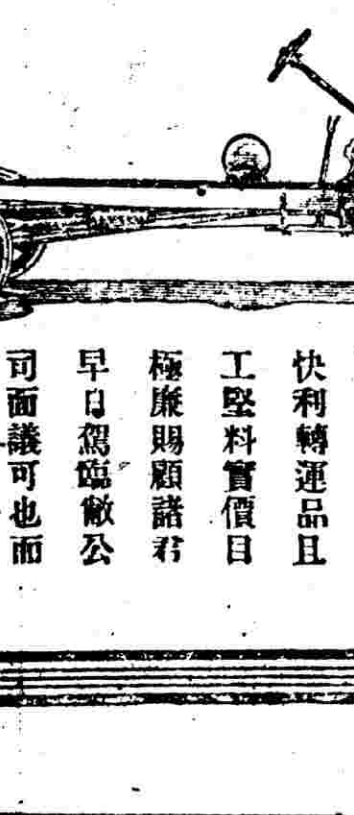 快利轉運品且
工堅料實價目
極廉賜顧諸君
早日駕臨敝公
司面議可也而